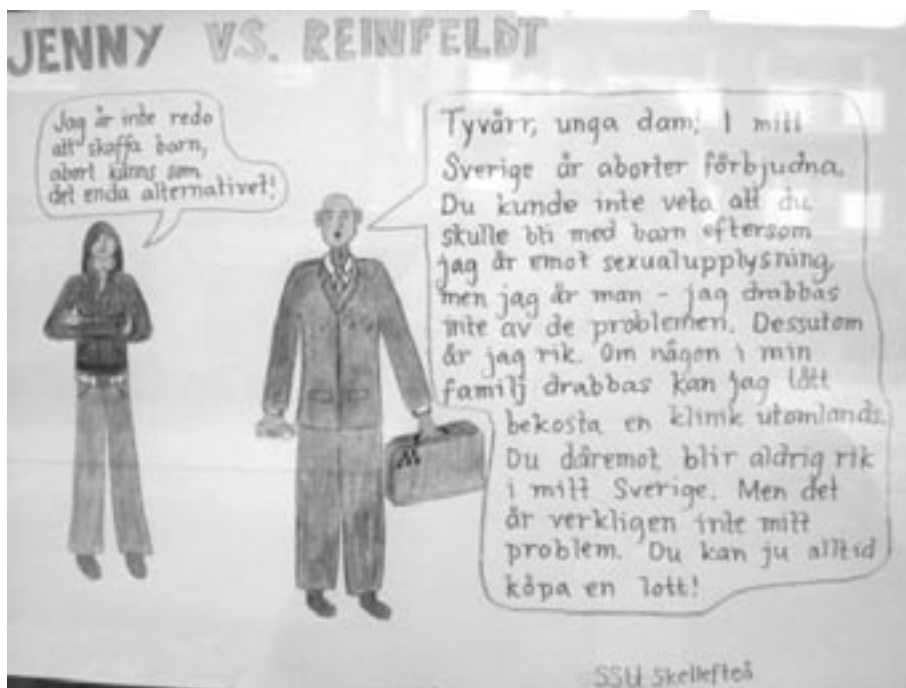 JENNY VS. REINFELDT
Jag är inte redo
att skaffa barn,
abort känns som
det enda alternativet!
Tyvärr, unga dam! I mitt
Sverige är aborter förbjudna.
Du kunde inte veta att du
skulle bli med barn eftersom
jag är emot sexualupplysning,
men jag är man - jag drabbas
inte av de problemen. Dessutom
är jag rik. Om någon i min
familj drabbas kan jag lätt
bekosta en klinik utomlands.
Du däremot blir aldrig rik
i mitt Sverige. Men det
är verkligen inte mitt
problem. Du kan ju alltid
köpa en lott!
M
SSU Skellefteå